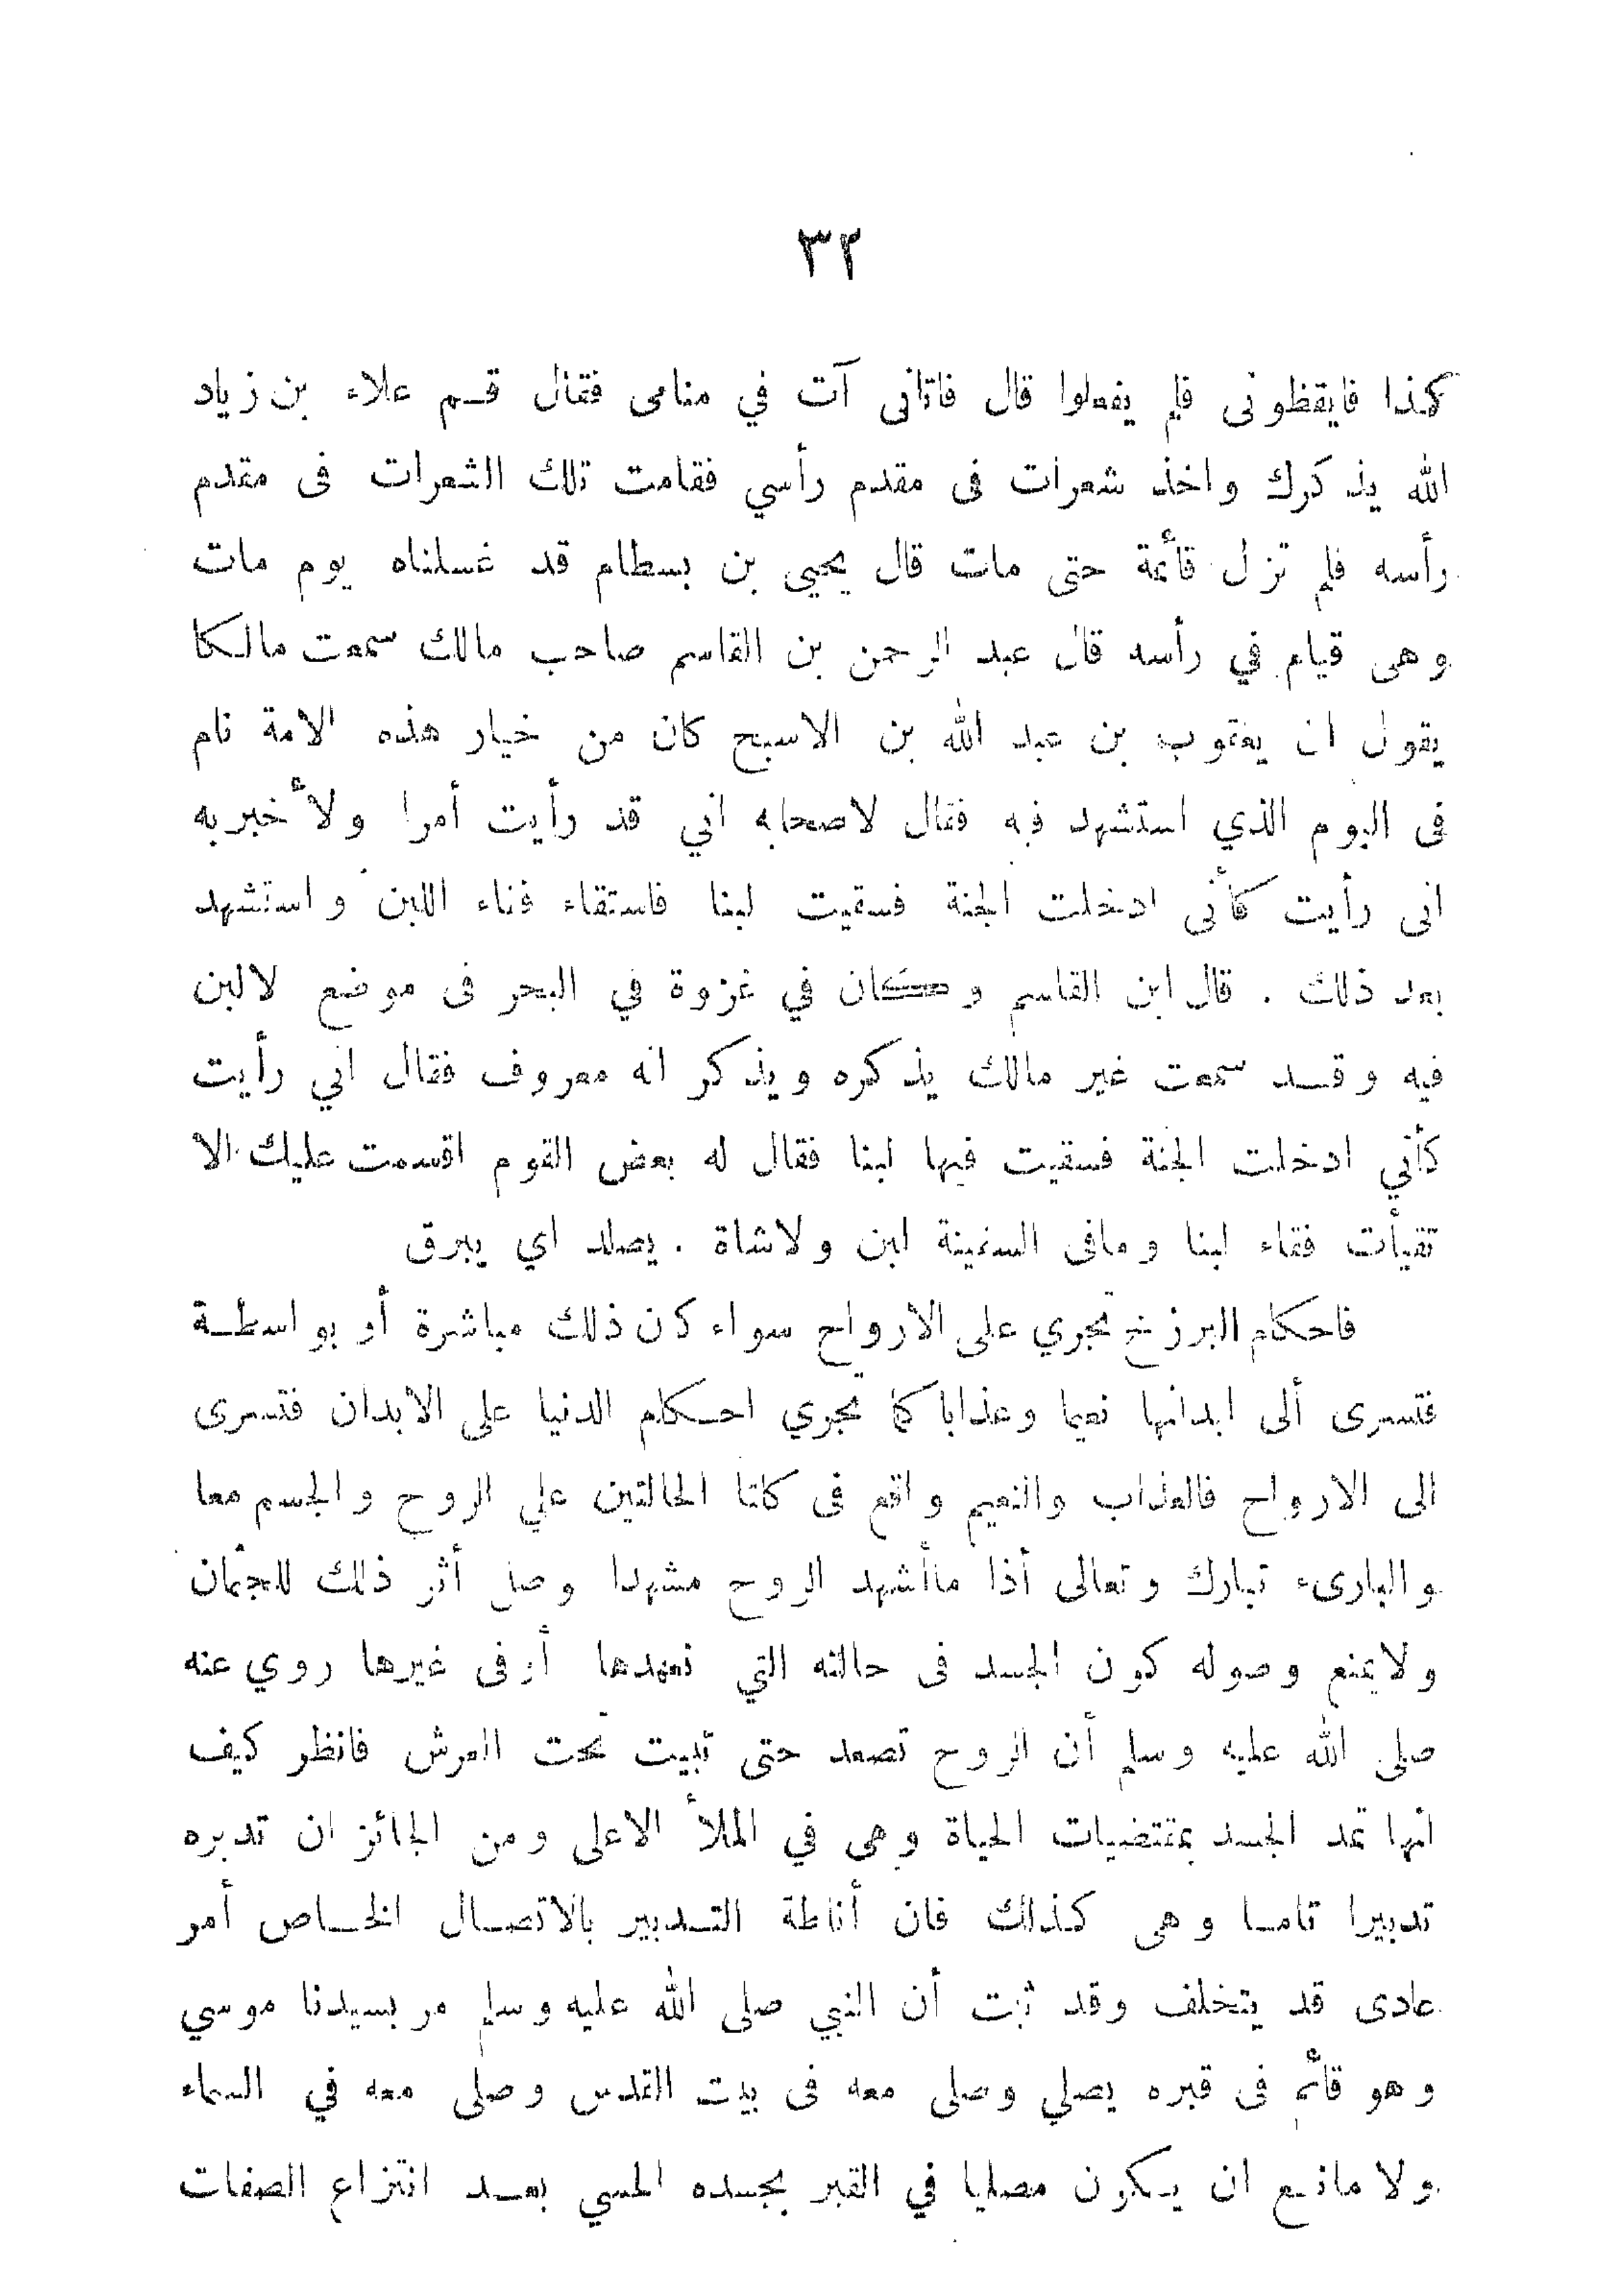 ٣٢
كذا فايقظونى فلم يفعلوا قال فاتانى آت في منامى فقال قـم علاء بن زياد
الله يذكرك واخذ شعرات فى مقدم رأسي فقامت تلك الشعرات فى مقدم
رأسه فلم تزل قائمة حتى مات قال يحيى بن بسطام قد غسلناه يوم مات
وهى قيام في رأسه قال عبد الرحمن بن القاسم صاحب مالك سمعت مالكا
يقول ان يعقوب بن عبد الله بن الاسبح كان من خيار هذه الامة نام
فى اليوم الذي استشهد فيه فقال لاصحابه اني قد رأيت أمرا ولأخبر به
انى رأيت كأنى ادخلت الجنة فسقيت لبنا فاستقاء فناء اللبن واستشهد
بعد ذلك . قال ابن القاسم وكان في غزوة في البحر فى موضع لالبن
فيه وقد سمعت غير مالك يذكره ويذكر انه معروف فقال اني رأيت
كأني ادخلت الجنة فسقيت فيها لبنا فقال له بعض القوم اقسمت عليك الا
تقيأت فقاء لبنا ومافى السفينة لبن ولاشاة . يصلد اي يبرق
فاحكام البرزخ تجري على الارواح سواء كان ذلك مباشرة أو بواسطة
فتسرى ألى ابدانها نعيما وعذابا كما تجري احكام الدنيا على الابدان فتسرى
الى الارواح فالعذاب والنعيم واقع فى كلتا الحالتين علي الروح والجسم معا
والبارىء تبارك وتعالى أذا ماأشهد الروح مشهدا وصل أثر ذلك للجثمان
ولايمنع وصوله كون الجسد فى حالته التي نعهدها أوفى غيرها روي عنه
صلى الله عليه وسلم أن الروح تصعد حتى تبيت تحت العرش فانظر كيف
انها تمد الجسد بمقتضيات الحياة وهى في الملأ الاعلى ومن الجائز ان تدبره
تدبيرا تاما وهى كذلك فان أناطة التدبير بالاتصال الخاص أمر
عادى قد يتخلف وقد ثبت أن النبي صلى الله عليه وسلم مر بسيدنا موسي
وهو قائم فى قبره يصلي وصلى معه فى بيت القدس وصلى معه في السماء
ولا مانع ان يكون مصليا في القبر بجسده الحسي بعد انتزاع الصفات